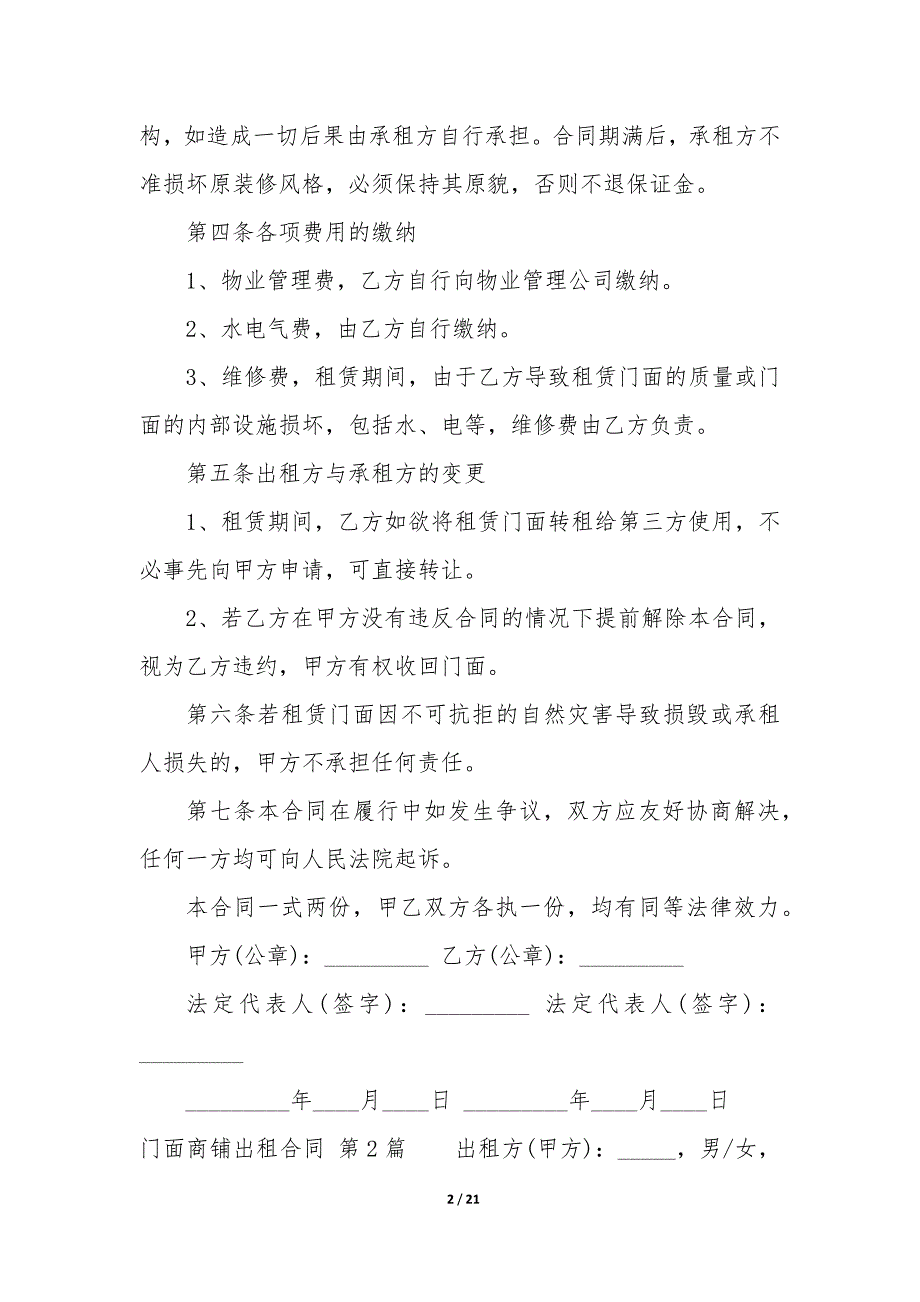 构，如造成一切后果由承租方自行承担。合同期满后，承租方不
准损坏原装修风格，必须保持其原貌，否则不退保证金。
第四条各项费用的缴纳
1、物业管理费，乙方自行向物业管理公司缴纳。
2、水电气费，由乙方自行缴纳。
3、维修费，租赁期间，由于乙方导致租赁门面的质量或门
面的内部设施损坏，包括水、电等，维修费由乙方负责。
第五条出租方与承租方的变更
1、租赁期间，乙方如欲将租赁门面转租给第三方使用，不
必事先向甲方申请，可直接转让。
2、若乙方在甲方没有违反合同的情况下提前解除本合同，
视为乙方违约，甲方有权收回门面。
第六条若租赁门面因不可抗拒的自然灾害导致损毁或承租
人损失的，甲方不承担任何责任。
第七条本合同在履行中如发生争议，双方应友好协商解决，
任何一方均可向人民法院起诉。
本合同一式两份，甲乙双方各执一份，均有同等法律效力。
甲方(公章)：_________ 乙方(公章)：_________
法定代表人(签字)：_________ 法定代表人(签字)：
_________
_________年____月____日 _________年____月____日
门面商铺出租合同 第2篇 出租方(甲方)：_____，男/女，
2 / 21